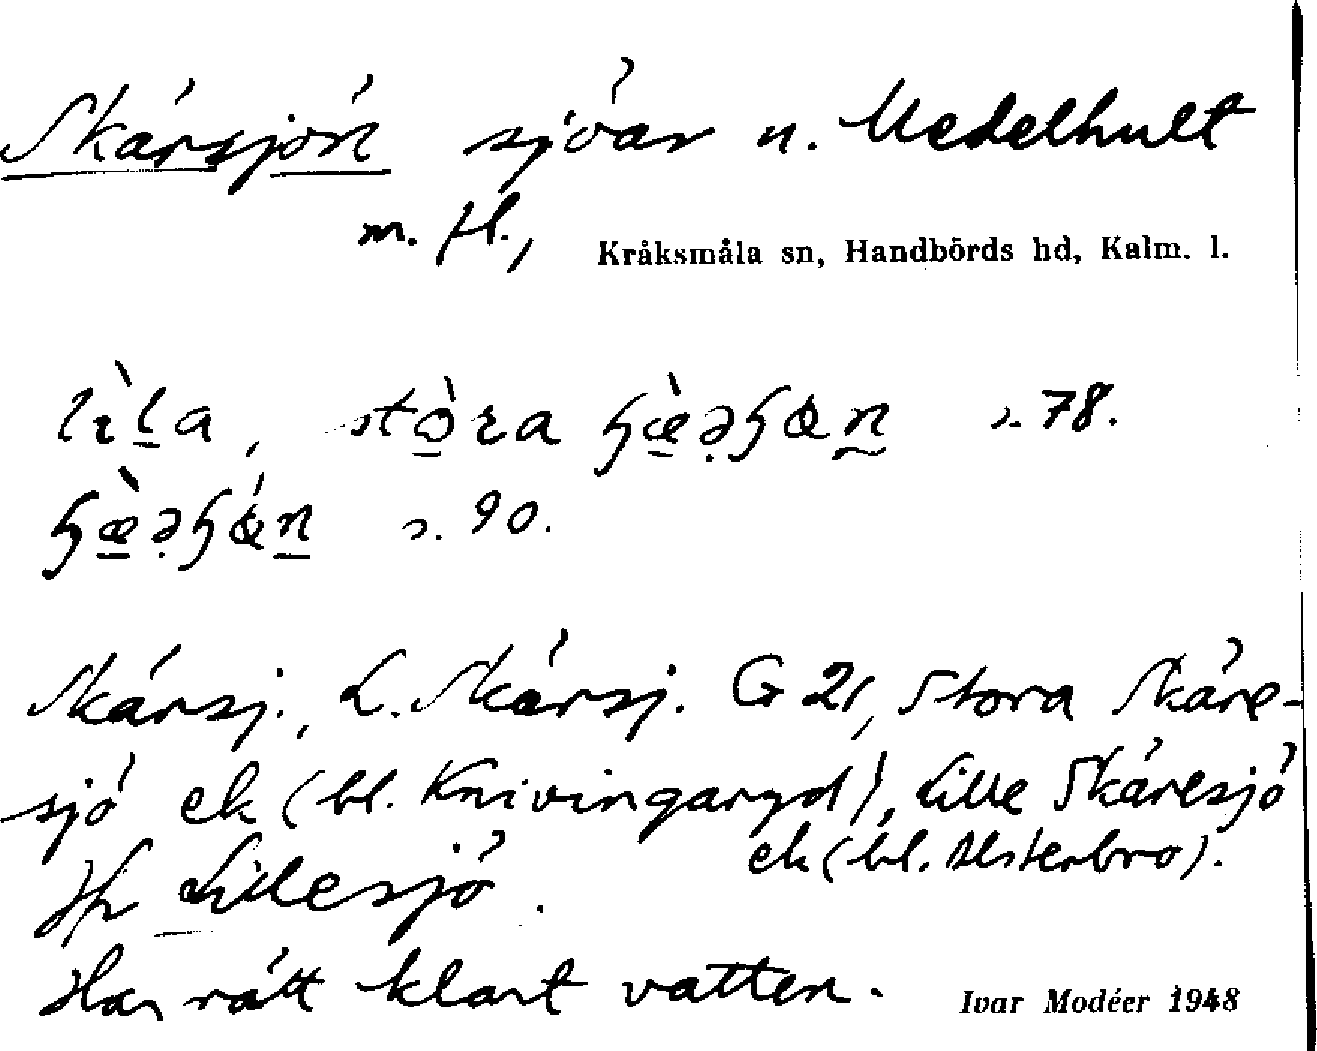 Skärsjön sjöar n. Medelhult
m. fl.,
Kråksmåla sn, Handbörds hd, Kalm. l.
s. 78.
s. 90.
Skärsj., L. Skärsj. G 21, Stora Skäre-
sjö ek (bl. Knivingaryd), Lille Skäresjö
ek (bl. Alsterbro).
Jfr Lillesjö.
Har rätt klart vatten.
Ivar Modéer 1948